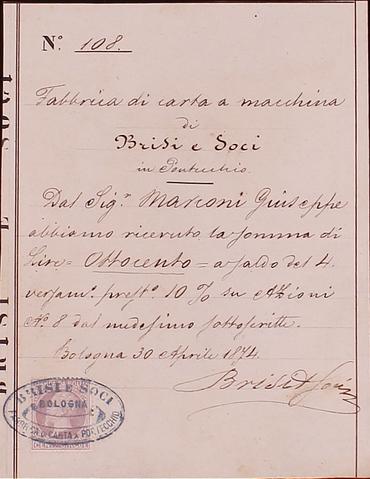 Nº 108.
Fabbrica di carta a macchina
di
Brisi e Soci
in Pontecchio.
Dal Sig.r Marconi Giuseppe
abbiamo ricevuto la somma di
Lire = Ottocento = a saldo del 4.
versam.º prest.º 10 % su Azioni
Nº 8 dal medesimo sottoscritte.
Bologna 30 Aprile 1874.
Brisi e Soci
BRISI E SOCI
BOLOGNA
CARTA A PONTECCHIO